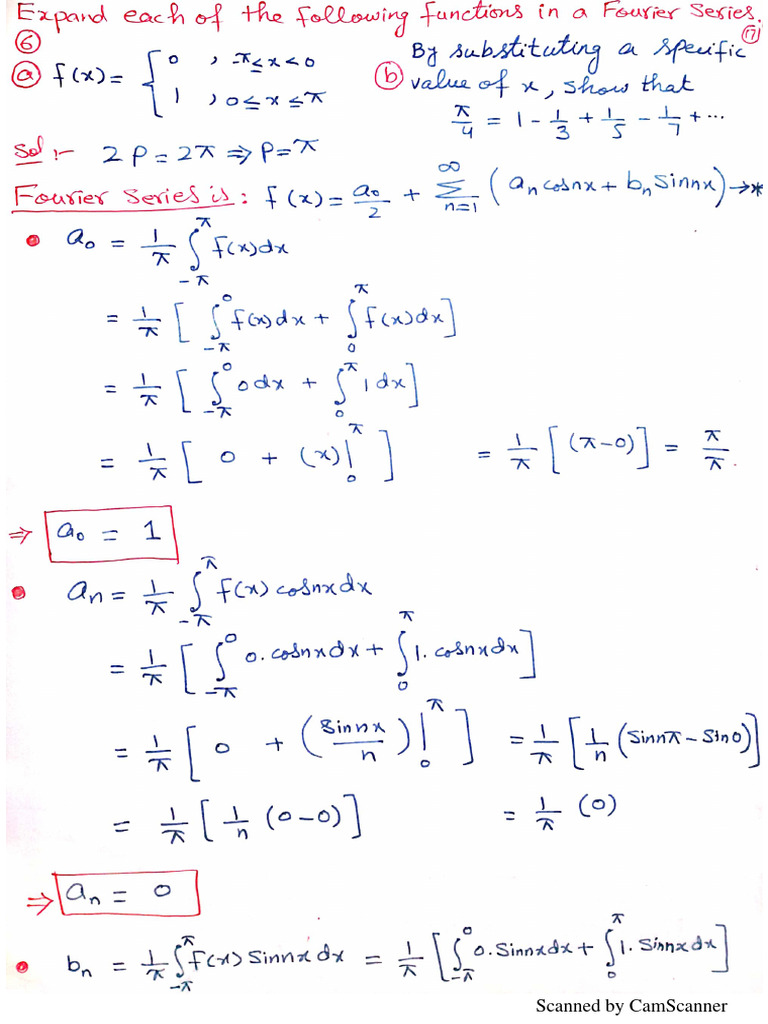 Expand each of the following functions in a Fourier Series.
⑥ ⑰
ⓐ f(x) = { 0 , -π≤x<0
1 , 0≤x≤π
ⓑ By substituting a specific
value of x, show that
π/4 = 1 - 1/3 + 1/5 - 1/7 + ...
Sol :- 2P = 2π ⇒ P = π
Fourier Series is : f(x) = a₀/2 + ∑_{n=1}^{∞} (aₙ cosnx + bₙ Sinnx) → *
• a₀ = 1/π ∫_{-π}^{π} f(x)dx
= 1/π [ ∫_{-π}^{0} f(x)dx + ∫_{0}^{π} f(x)dx ]
= 1/π [ ∫_{-π}^{0} 0dx + ∫_{0}^{π} 1dx ]
= 1/π [ 0 + (x)|_{0}^{π} ] = 1/π [ (π-0) ] = π/π.
⇒ a₀ = 1
• aₙ = 1/π ∫_{-π}^{π} f(x) cosnxdx
= 1/π [ ∫_{-π}^{0} 0.cosnxdx + ∫_{0}^{π} 1.cosnxdx ]
= 1/π [ 0 + (Sinnx/n)|_{0}^{π} ] = 1/π [ 1/n (Sinnπ - Sin0) ]
= 1/π [ 1/n (0-0) ] = 1/π (0)
⇒ aₙ = 0
• bₙ = 1/π ∫_{-π}^{π} f(x) Sinnxdx = 1/π [ ∫_{-π}^{0} 0.Sinnxdx + ∫_{0}^{π} 1.Sinnxdx ]
Scanned by CamScanner